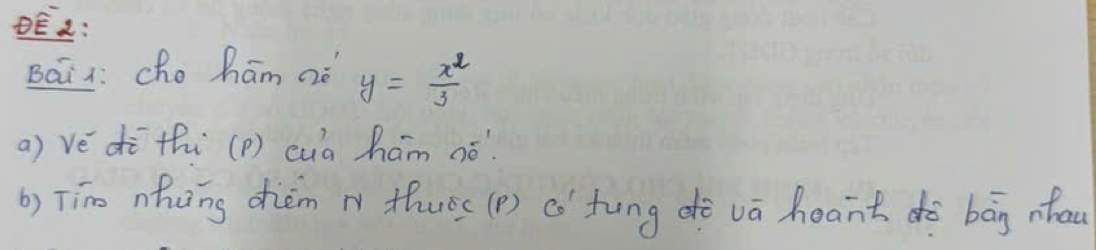 ĐỀ 2:
Bài 1: cho hàm số y = x²/3
a) Vẽ đồ thị (P) của hàm số.
b) Tìm những điểm N thuộc (P) có tung độ và hoành độ bằng nhau